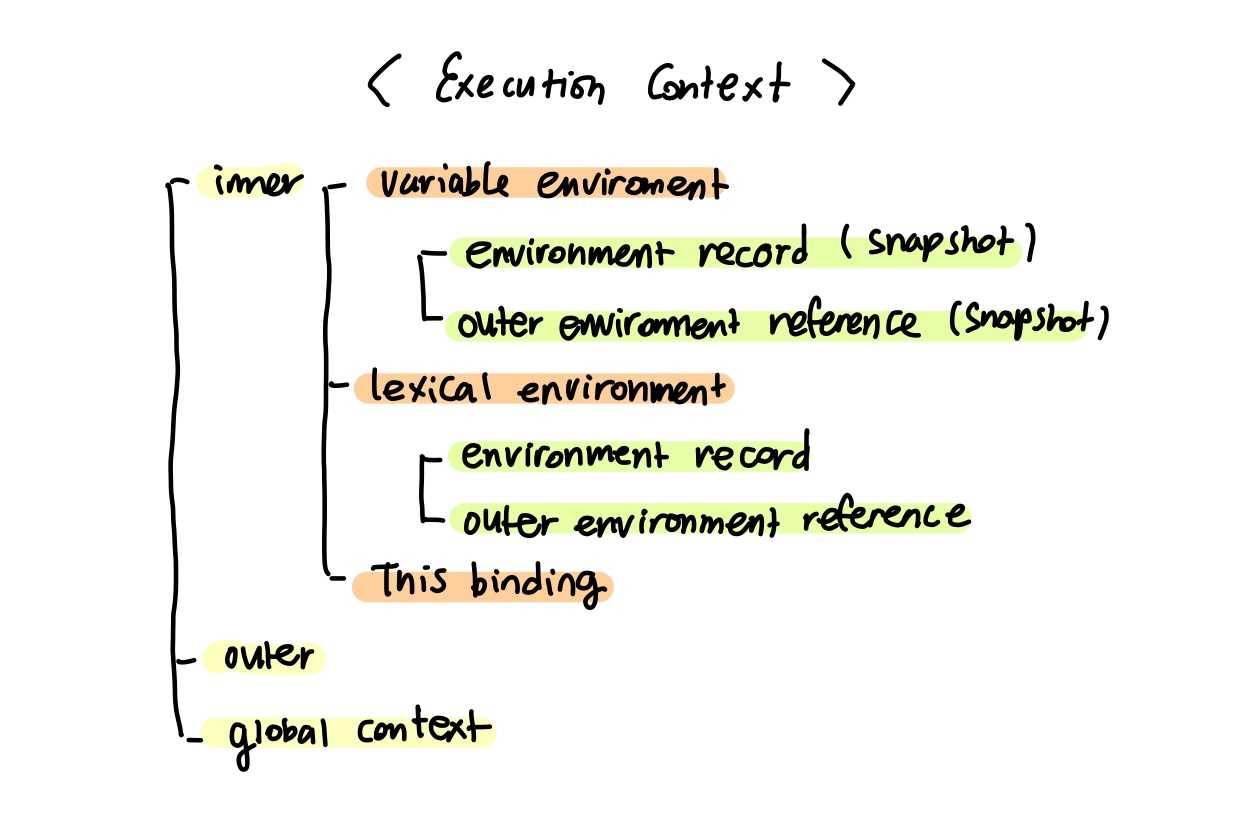 < Execution Context >
inner
variable enviroment
environment record (snapshot)
outer environment reference (snapshot)
lexical environment
environment record
outer environment reference
This binding
outer
global context